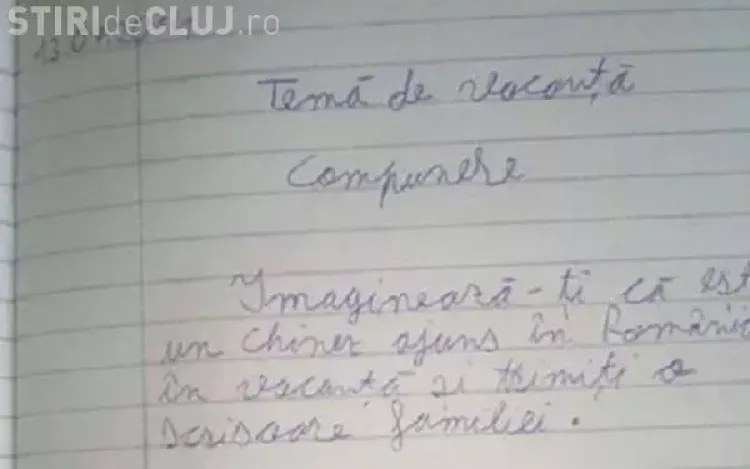 STIRIdeCLUJ.ro
Temă de vacanță
Compunere
Imaginează-ți că est
un chinez ajuns în România
în vacanță și trimiți o
scrisoare familiei.